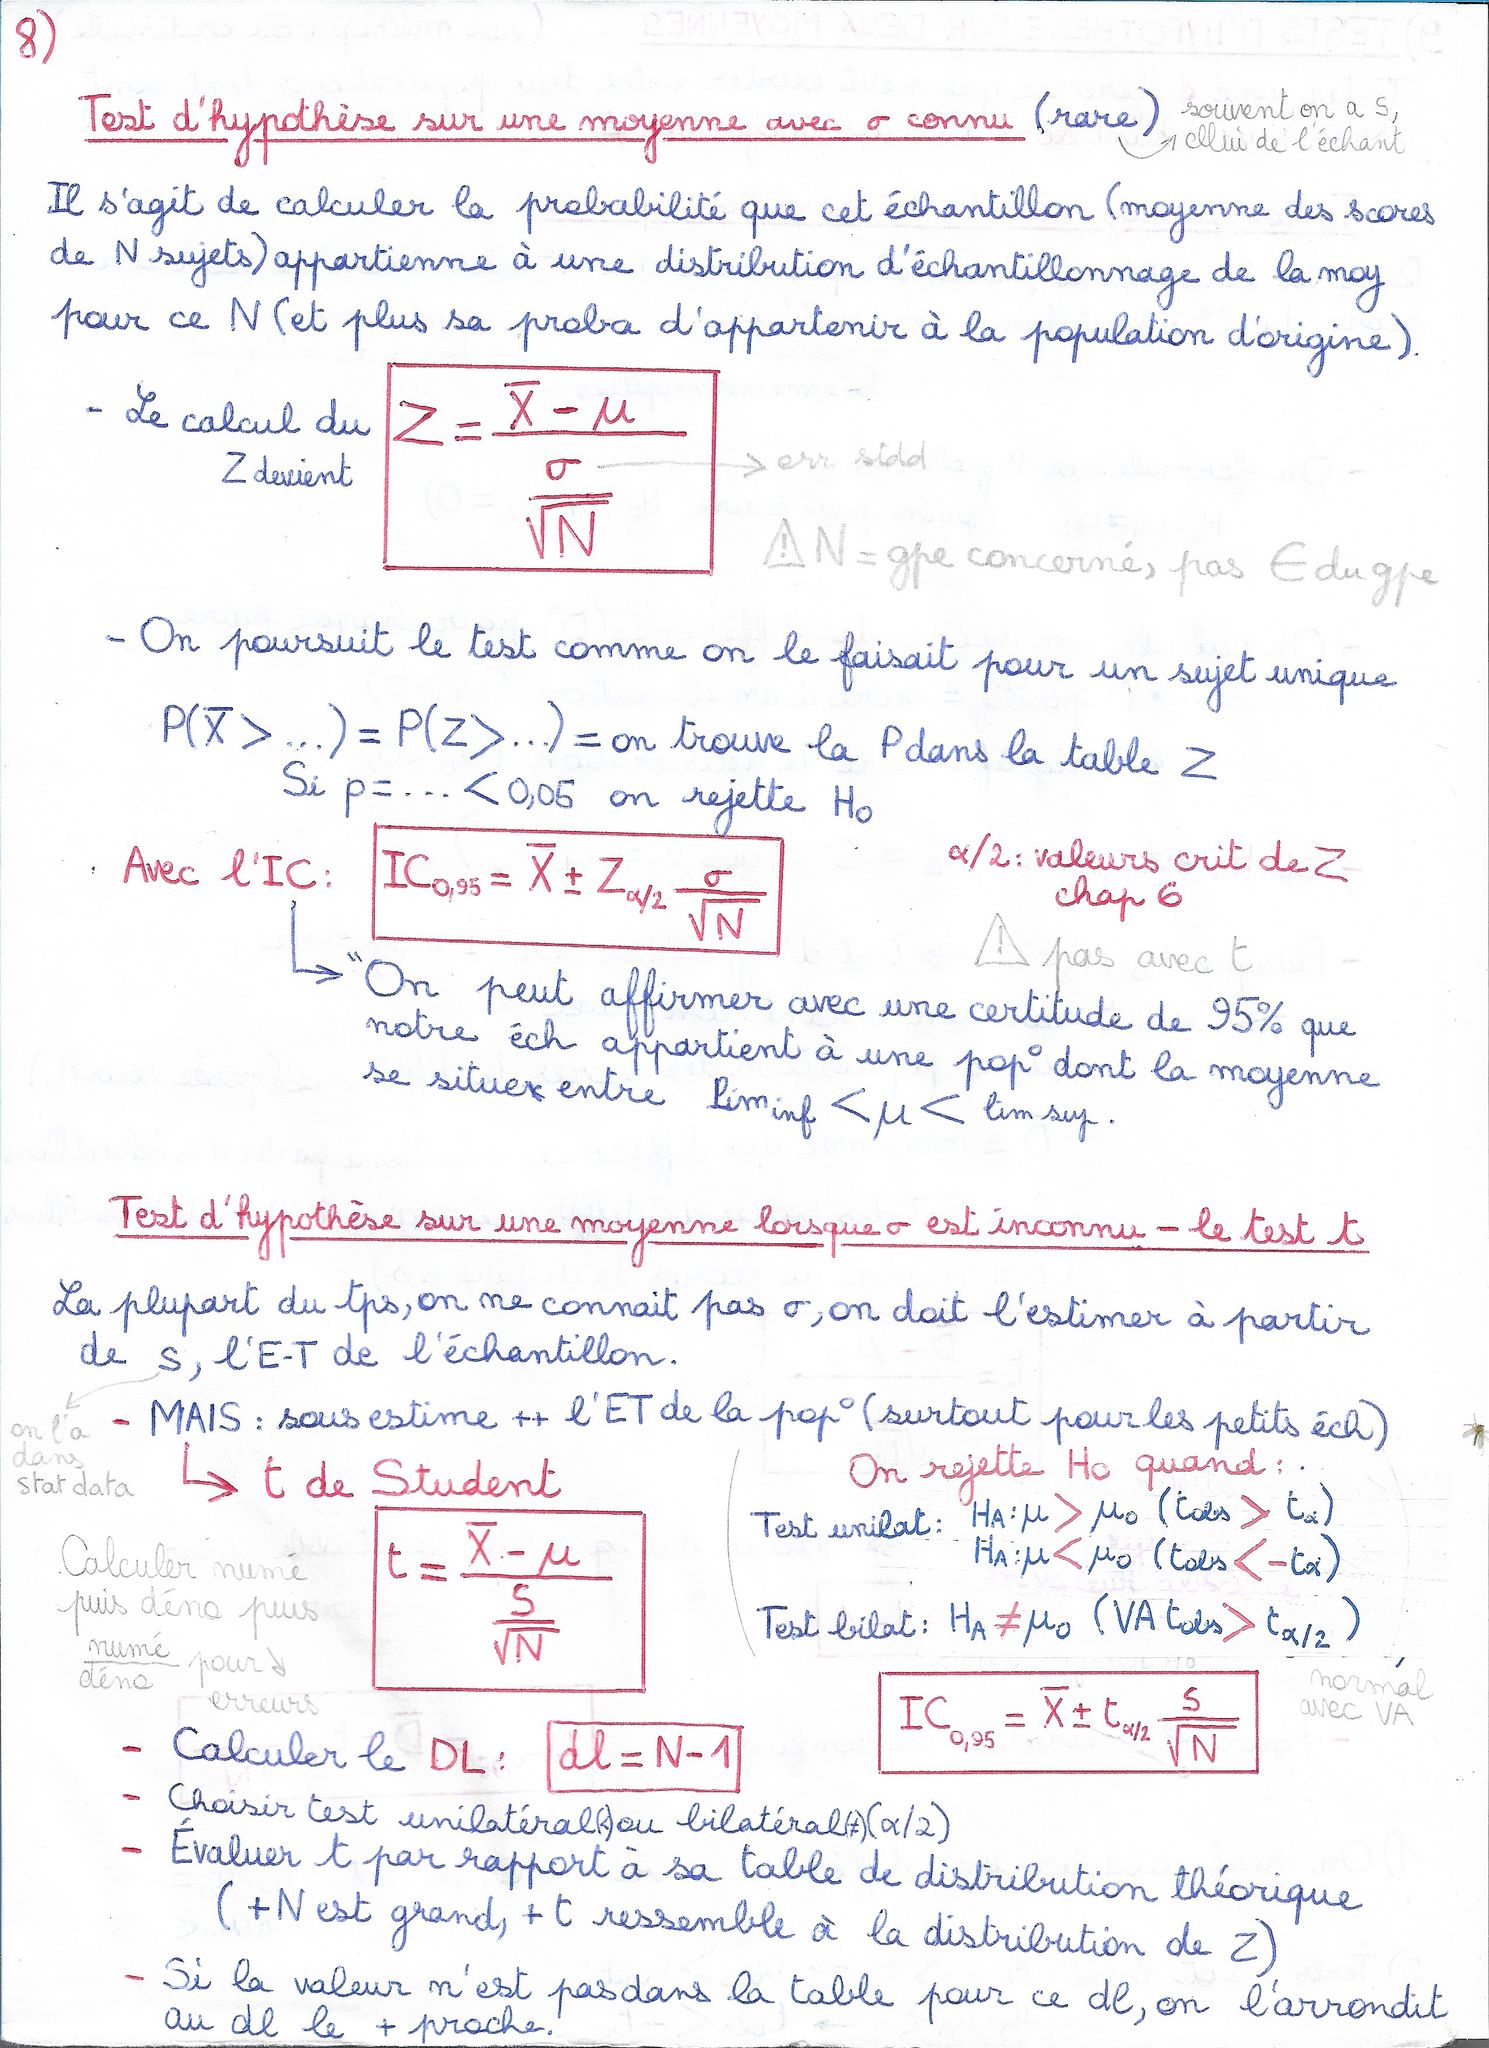 8)
Test d'hypothèse sur une moyenne avec σ connu (rare) souvent on a s,
celui de l'échant
Il s'agit de calculer la probabilité que cet échantillon (moyenne des scores
de N sujets) appartienne à une distribution d'échantillonnage de la moy
pour ce N (et plus sa proba d'appartenir à la population d'origine).
- Le calcul du Z = (X̄ - μ) / (σ / √N)
Z devient
→ err stdd
⚠ N = gpe concerné, pas ∈ du gpe
- On poursuit le test comme on le faisait pour un sujet unique
P(X̄ > ...) = P(Z > ...) = on trouve la P dans la table Z
Si p = ... < 0,05 on rejette H₀
Avec l'IC : IC₀,₉₅ = X̄ ± Z α/2 σ/√N
α/2 : valeurs crit de Z
chap 6
⚠ pas avec t
↳ "On peut affirmer avec une certitude de 95% que
notre éch appartient à une pop° dont la moyenne
se situe entre lim inf < μ < lim sup.
Test d'hypothèse sur une moyenne lorsque σ est inconnu - le test t
La plupart du tps, on ne connait pas σ, on doit l'estimer à partir
de s, l'E-T de l'échantillon.
on l'a
dans
stat data
- MAIS : sous estime ++ l'ET de la pop° (surtout pour les petits éch)
↳ t de Student
t = (X̄ - μ) / (s / √N)
Calculer numé
puis déno puis
numé/déno pour ↘
erreurs
On rejette H₀ quand :
Test unilat : HA : μ > μ₀ (tobs > tα)
HA : μ < μ₀ (tobs < -tα)
Test bilat : HA ≠ μ₀ (VA tobs > tα/2)
normal
avec VA
IC₀,₉₅ = X̄ ± tα/2 s/√N
- Calculer le DL : dl = N - 1
- Choisir test unilatéral(<) ou bilatéral(≠)(α/2)
- Évaluer t par rapport à sa table de distribution théorique
(+ N est grand, + t ressemble à la distribution de Z)
- Si la valeur n'est pas dans la table pour ce dl, on l'arrondit
au dl le + proche.